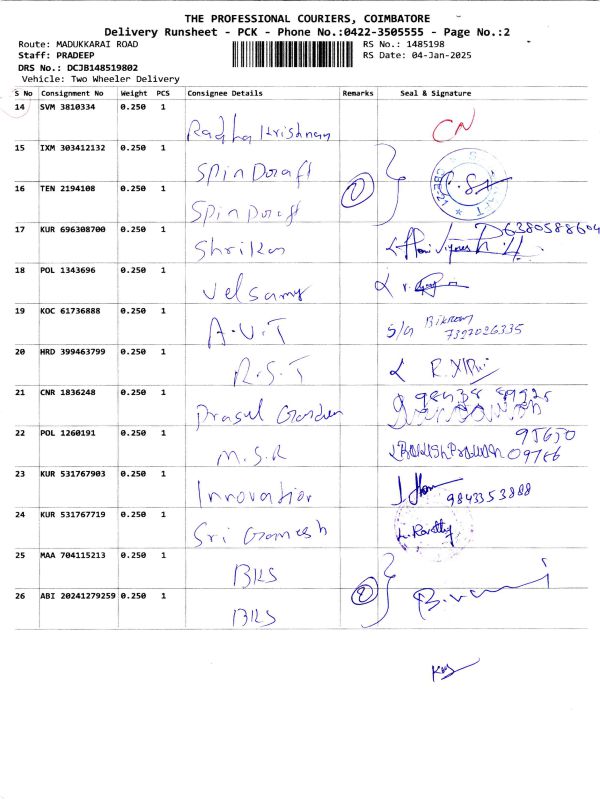 THE PROFESSIONAL COURIERS, COIMBATORE
Delivery Runsheet - PCK - Phone No.:0422-3505555 - Page No.:2
Route: MADUKKARAI ROAD RS No.: 1485198
Staff: PRADEEP RS Date: 04-Jan-2025
DRS No.: DCJB148519802
Vehicle: Two Wheeler Delivery
S No Consignment No Weight PCS Consignee Details Remarks Seal & Signature
14 SVM 3810334 0.250 1 Radha Krishnan CN
15 IXM 303412132 0.250 1 Spin Doraft
16 TEN 2194108 0.250 1 Spin Doraft
17 KUR 696308700 0.250 1 Shrikar 6380588604
18 POL 1343696 0.250 1 Velsamy
19 KOC 61736888 0.250 1 A.V.T
20 HRD 399463799 0.250 1 R.S.T
21 CNR 1836248 0.250 1 Garden
22 POL 1260191 0.250 1 M.S.R 95650
09766
23 KUR 531767903 0.250 1 Innovation 9843353888
24 KUR 531767719 0.250 1 Sri Ganesh
25 MAA 704115213 0.250 1 BKS
26 ABI 20241279259 0.250 1 BKS 2